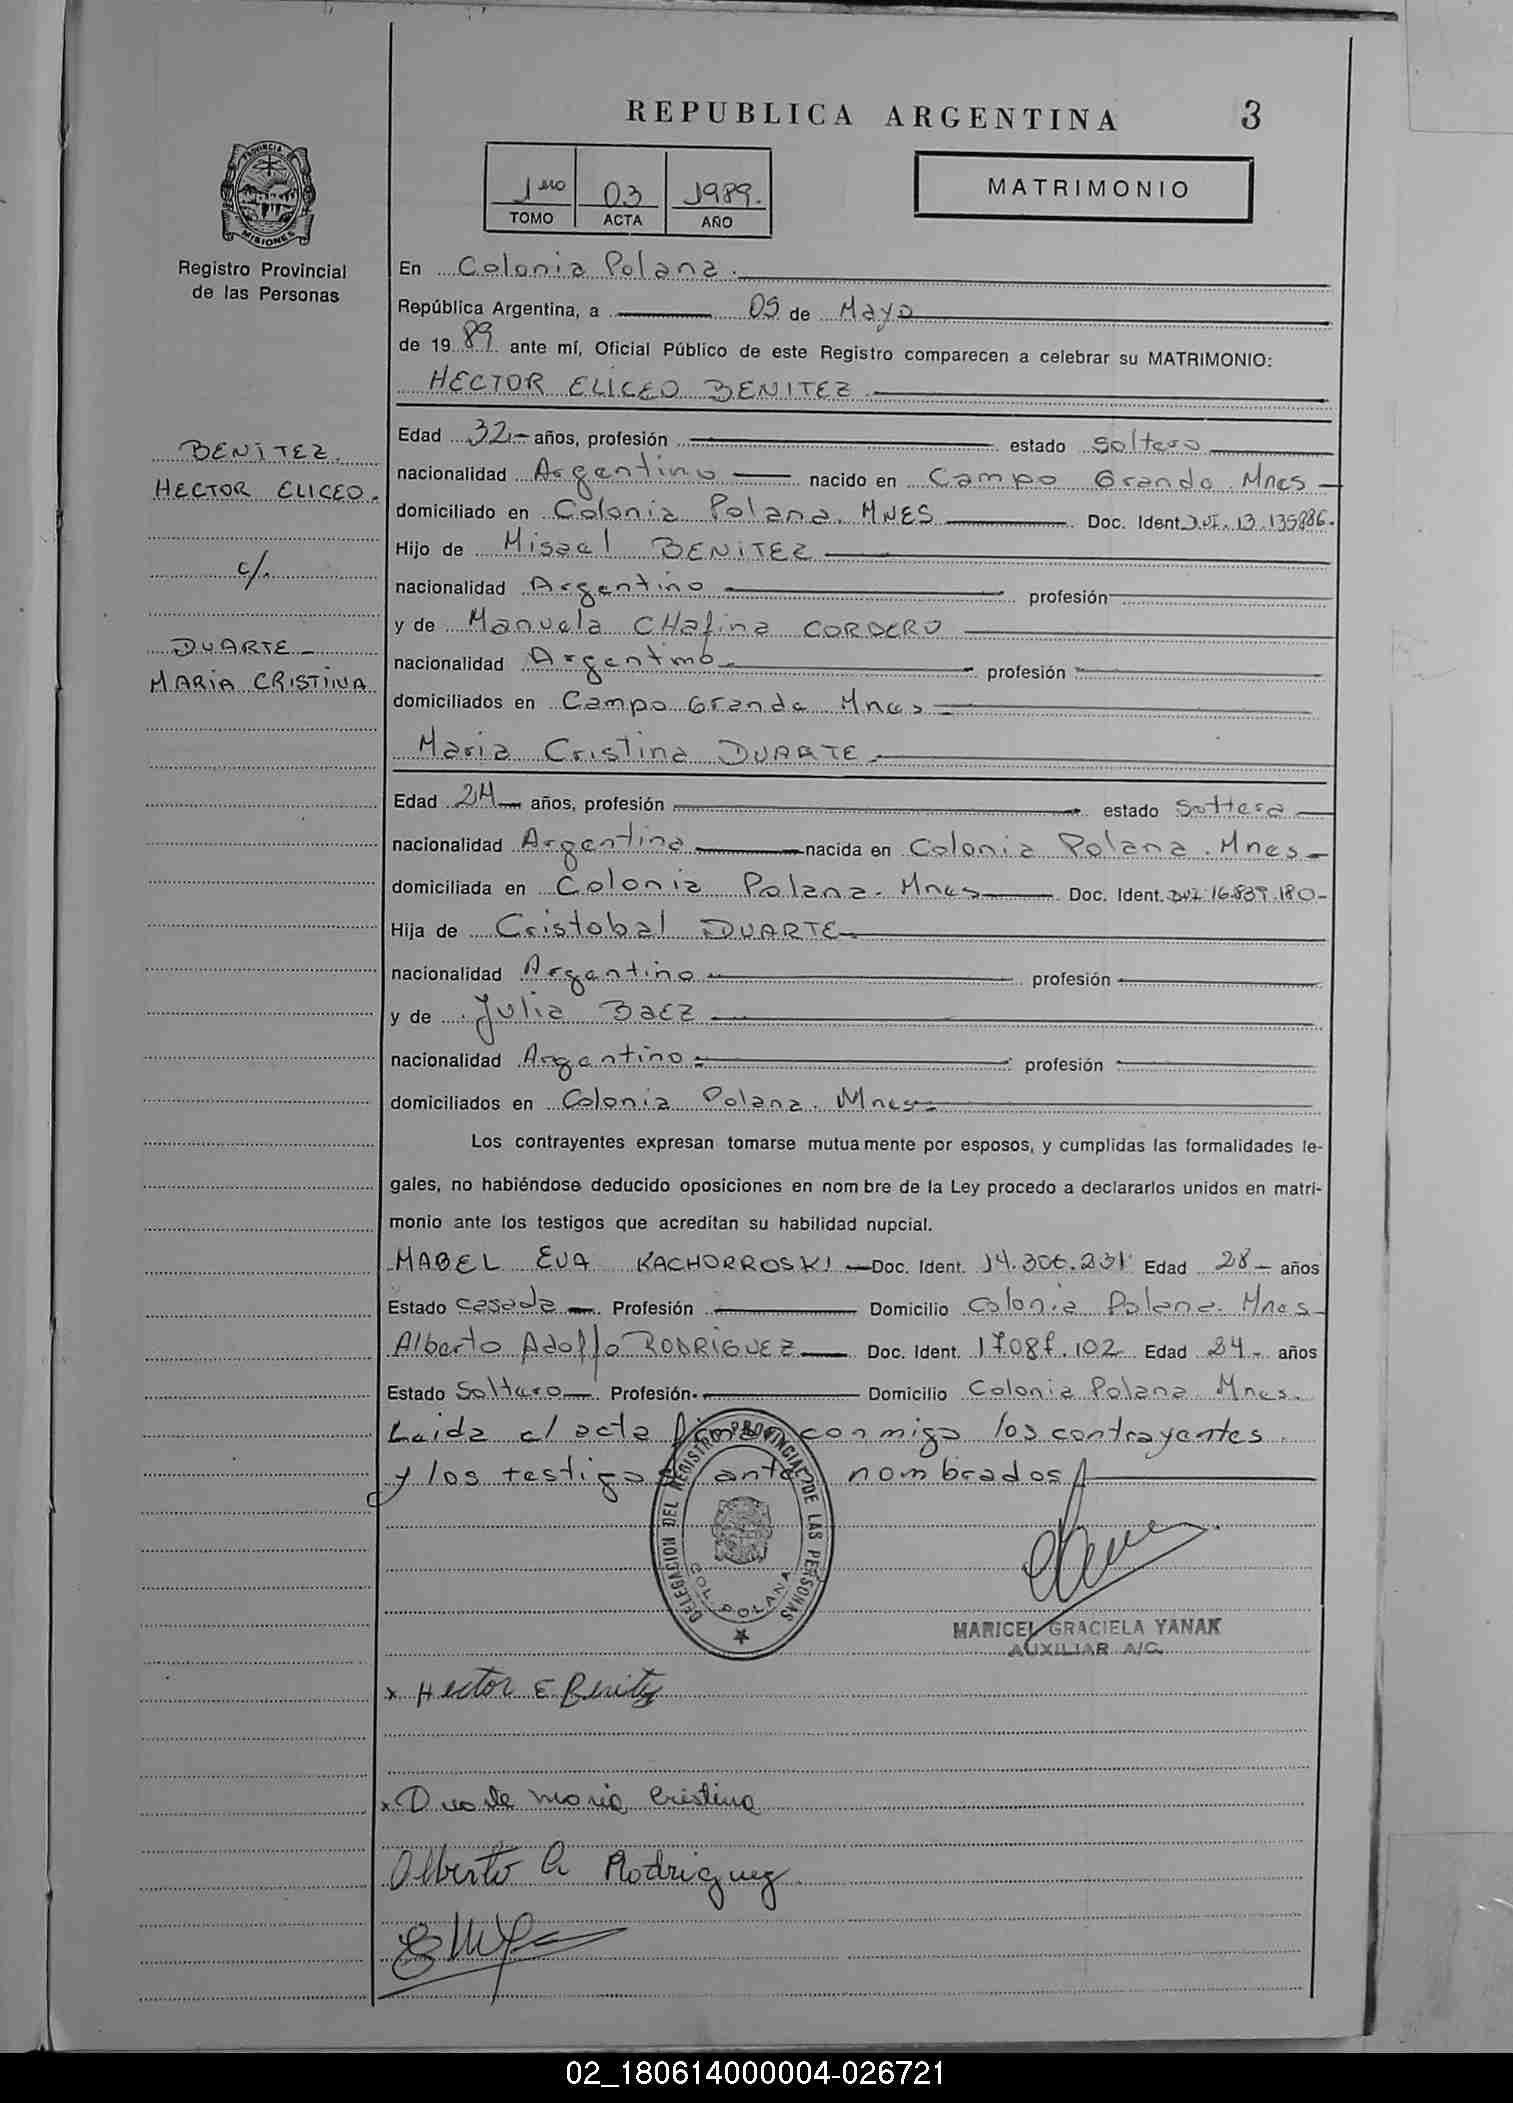 REPUBLICA ARGENTINA 3
MATRIMONIO
1ero 03 1989.
TOMO ACTA AÑO
PROVINCIA
MISIONES
Registro Provincial
de las Personas
BENITEZ.
HECTOR ELICEO.
c/.
DUARTE
MARIA CRISTINA
En Colonia Polana.
República Argentina, a 05 de Mayo
de 1989 ante mí, Oficial Público de este Registro comparecen a celebrar su MATRIMONIO:
HECTOR ELICEO BENITEZ
Edad 32 años, profesión estado soltero
nacionalidad Argentino nacido en Campo Grande Mnes
domiciliado en Colonia Polana. MNES Doc. Ident. D.N.I. 13.135.886.
Hijo de Misael BENITEZ
nacionalidad Argentino profesión
y de Manuela CHafina CORDERO
nacionalidad Argentino profesión
domiciliados en Campo Grande Mnes
Maria Cristina DUARTE
Edad 24 años, profesión estado soltera
nacionalidad Argentina nacida en Colonia Polana. Mnes
domiciliada en Colonia Polana. Mnes Doc. Ident. DNI 16.839.180
Hija de Cristobal DUARTE
nacionalidad Argentino profesión
y de Julia BaEZ
nacionalidad Argentino profesión
domiciliados en Colonia Polana. Mnes
Los contrayentes expresan tomarse mutuamente por esposos, y cumplidas las formalidades le-
gales, no habiéndose deducido oposiciones en nombre de la Ley procedo a declararlos unidos en matri-
monio ante los testigos que acreditan su habilidad nupcial.
MABEL EVA KACHORROSKI Doc. Ident. 14.306.231 Edad 28 años
Estado casada Profesión Domicilio Colonia Polana. Mnes
Alberto Adolfo RODRIGUEZ Doc. Ident. Edad 24 años
Estado Soltero Profesión Domicilio Colonia Polana Mnes.
Leida el acta firman conmigo los contrayentes
y los testigos antes nombrados
DELEGACION DEL REGISTRO PROVINCIAL DE LAS PERSONAS
COL. POLANA
MARICEL GRACIELA YANAK
AUXILIAR A/C.
x Hector E Benitez
x Duarte Maria Cristina
Alberto A Rodriguez
02_180614000004-026721